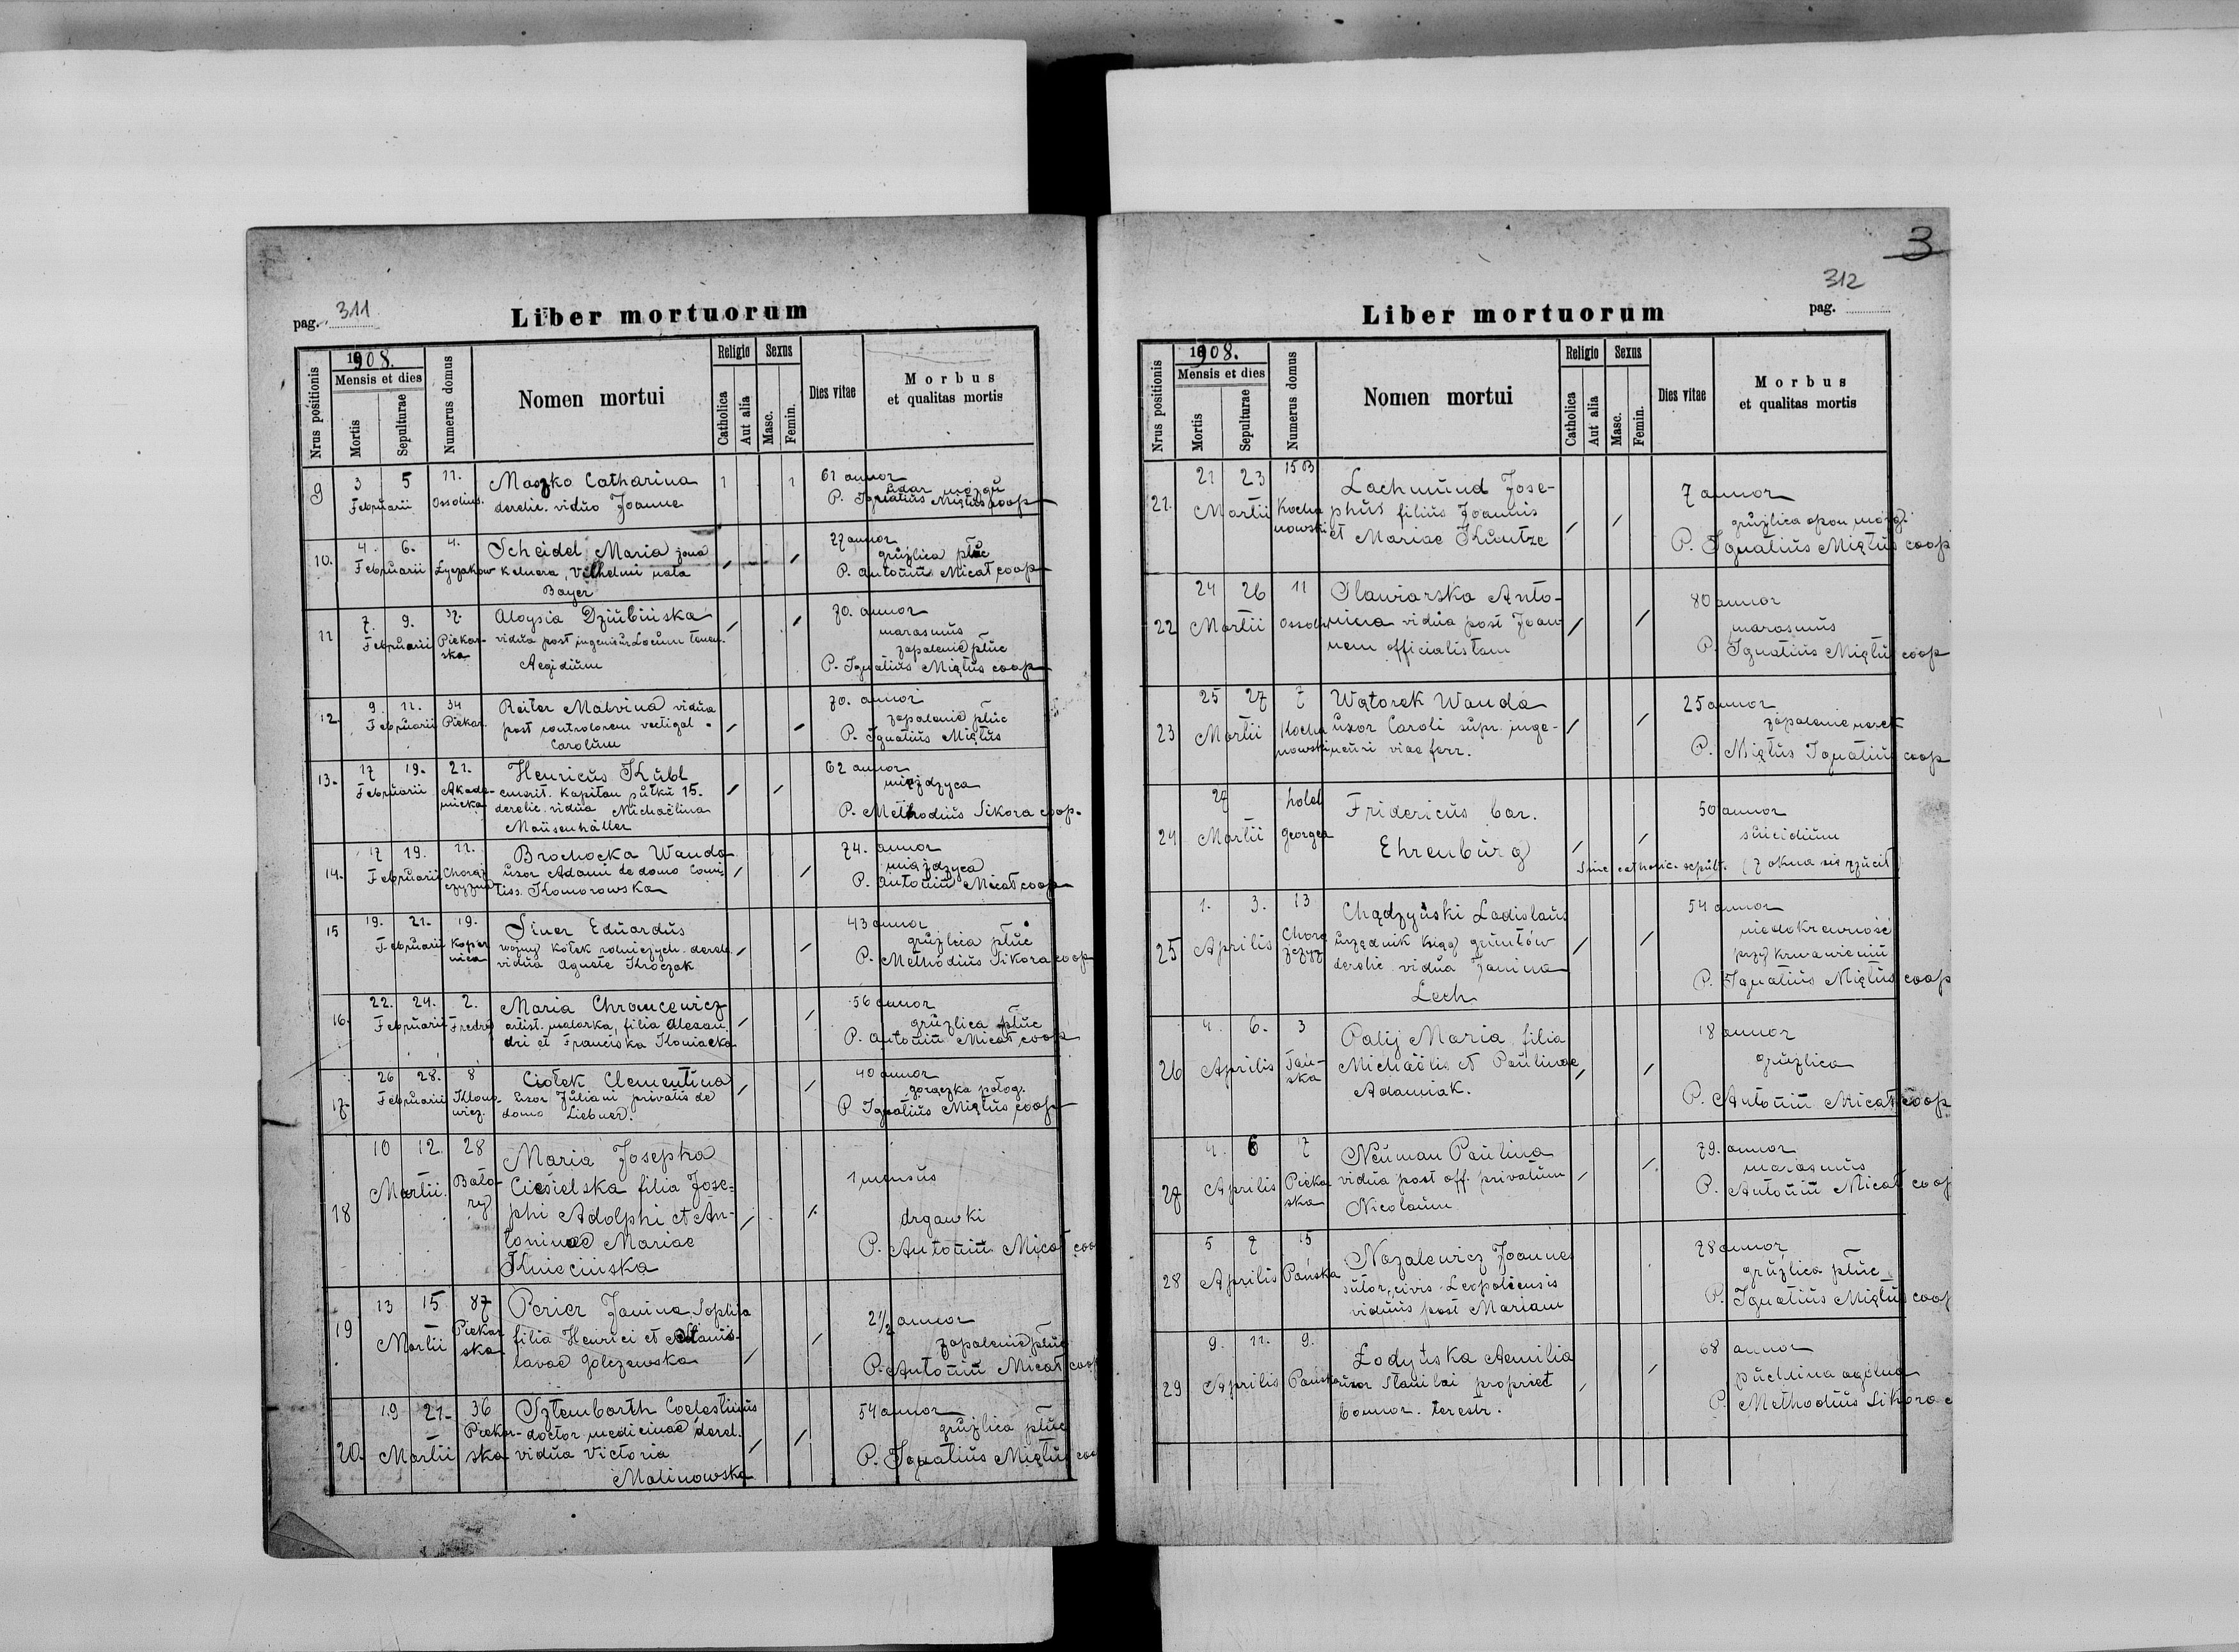 pag. 311
Liber mortuorum
Nrus positionis
1908.
Mensis et dies
Mortis
Sepulturae
Numerus domus
Nomen mortui
Religio
Catholica
Aut alia
Sexus
Masc.
Femin.
Dies vitae
Morbus
et qualitas mortis
9 3 5 11. Maczko Catharina 1 1 61 annor
Februarii Ossolins. derelic. viduo Joanne udar mózgu
P. Ignatius Miętus coop
10. 4. 6. 4. Scheidel Maria żona / / 27 annor
Februarii Łyczakow kelnera, Vilhelmi nata gruźlica płuc
Bayer P. Antonin Micat coop
11 7. 9. 37. Aloysia Dziubinska / / 70. annor
Februarii Piekar- vidua post ingenieur Locum tenen. marasmus
ska Aegidium zapalenie płuc
P. Ignatius Miętus coop
12. 9. 11. 34 Reiter Malvina vidua / / 70. annor
Februarii Piekar. post controlorem vectigal. zapalenie płuc
Carolum P. Ignatius Miętus
13. 17 19. 21. Henricus Kübl / / 62 annor
Februarii Akade- emerit. Kapitan pułku 15. miażdżyca
micka derelic. vidua Michaëlina
Mausenhäller P. Methodius Sikora coop.
14. 17 19. 11. Brochocka Wanda / / 74. annor
Februarii Chorąż uxor Adami de domo Comi- miażdżyca
czyzna tiss. Komorowska P. Antonin Micat coop
15 19. 21. 19. Siner Eduardus / / 43 annor
Februarii Koper woźny kołek rolniczych. derel. gruźlica płuc
nica vidua Agnete Kroczak P. Methodius Sikora coop
16. 22. 24. 2. Maria Chromcewicz / / 56 annor
Februarii Fredry artist. malarka, filia Alexan- gruźlica płuc
dri et Franciska Koniacka P. Antonin Micat coop
17. 26 28. 8 Ciołek Clementina / / 40 annor
Februarii Klono- uxor Juliani privatis de gorączka połog.
wicz. domo Liebner. P. Ignatius Miętus coop
18 10 12. 28 Maria Josepha
Martii. Bato- Ciesielska filia Jose- 1 mensis
ry phi Adolphi et An- / / drgawki
toninae Mariae P. Antonin Micat coo
Kniecinska
19 13 15 87 Perier Janina Sophia 2 1/2 annor
Martii Piekar filia Henrici et Stanis- / / zapalenie płuc
ska lavae Golczewska P. Antonin Micat coop
20. 19 21. 36 Sztembarth Coelestinus 54 annor
Martii Piekar- doctor medicinae derel. / / gruźlica płuc
ska vidua Victoria P. Ignatius Miętus coo
Malinowska
3
312
pag.
Liber mortuorum
Nrus positionis
1908.
Mensis et dies
Mortis
Sepulturae
Numerus domus
Nomen mortui
Religio
Catholica
Aut alia
Sexus
Masc.
Femin.
Dies vitae
Morbus
et qualitas mortis
21. 21 23 15 B Lachmund Jose- 7 annor
Martii Kocha phus filius Joannis / / gruźlica opon mózg.
nowski et Mariae Kuntze P. Ignatius Miętus coop
22 24 26 11 Slawiarska Anto- 80 annor
Martii Ossoli nina vidua post Joan- / / marasmus
nem officialistam P. Ignatius Miętus coop
23 25 27 7 Wątorek Wanda 25 annor
Martii Kocha uxor Caroli supr. inge- / / zapalenie nerek
nowski neuri viae ferr. P. Miętus Ignatius coop
24 29 hotel Fridericus bar. 50 annor
Martii Georgea Ehrenburg / / suicidium
Sine catholic. sepult. (z okna się rzucił)
25 1. 3. 13 Chądzyński Ladislaus 54 annor
Aprilis Chorą urzędnik ksiąg gruntów / / niedokrewność
żczyz derelic vidua Janina przy krwawieniu
Lech P. Ignatius Miętus coop
26 4. 6. 3 Palij Maria filia 18 annor
Aprilis Pań- Michaëlis et Paulinae / / gruźlica
ska Adamiak. P. Antonin Micat coop
27 4. 6 7 Neuman Paulina 79. annor
Aprilis Pieka vidua post off. privatum / / marasmus
ska Nicolaum P. Antonin Micat coop
28 5 7 15 Nazalewicz Joannes 78 annor
Aprilis Pańska sutor, civis Leopoliensis gruźlica płuc
viduus post Mariam P. Ignatius Miętus coop
29 9. 11. 9. Łodyńska Aemilia 68 annor
Aprilis Pańska uxor Stanilai propriet / / puchlina ogólna
bonor. terestr. P. Methodius Sikora c